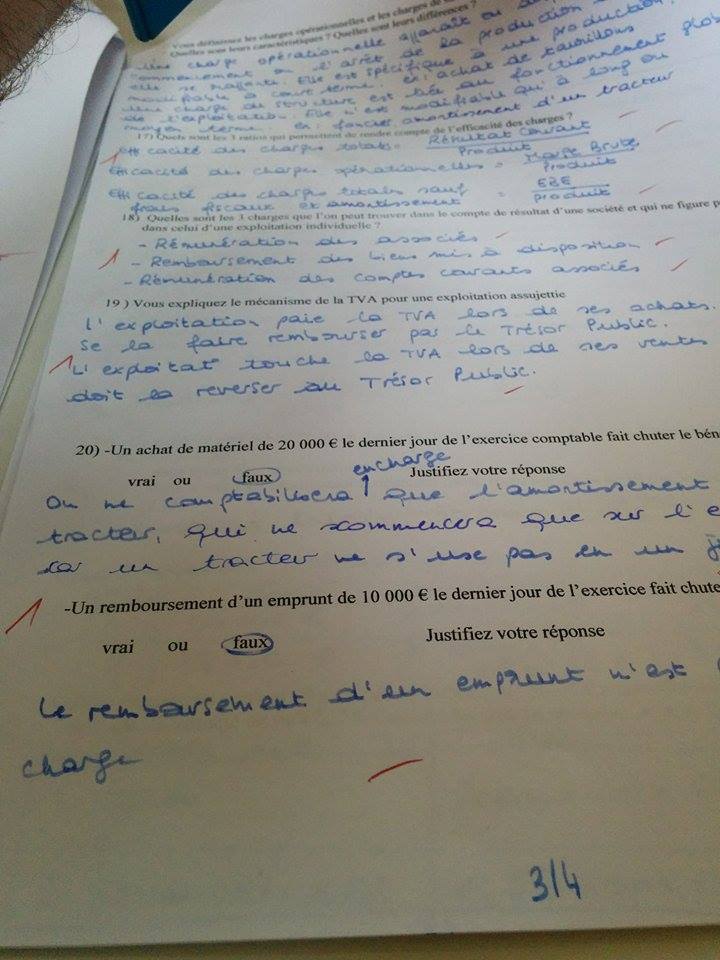 Vous définissez les charges opérationnelles et les charges de
Quelles sont leurs caractéristiques ? Quelles sont leurs différences ?
Une charge opérationnelle apparaît ou
commencement ou l'arrêt de la production
elle se rattache. Elle est spécifique à une production,
modifiable à court terme. ex: achat de taurillons
Une charge de structure est liée au fonctionnement
de l'exploitation. Elle n'est modifiable qu'à long ou
moyen terme. ex: foncier, amortissement d'un tracteur
17) Quels sont les 3 ratios qui permettent de rendre compte de l'efficacité des charges ?
Efficacité des charges totales = Résultat Courant
Produit
Efficacité des charges opérationnelles = Marge Brute
Produit
Efficacité des charges totales sauf = EBE
frais fiscaux et amortissement produit
18) Quelles sont les 3 charges que l'on peut trouver dans le compte de résultat d'une société et qui ne figure p
dans celui d'une exploitation individuelle ?
- Rémunération des associés
1 - Remboursement des biens mis à disposition
- Rémunération des comptes courants associés
19 ) Vous expliquez le mécanisme de la TVA pour une exploitation assujettie
L'exploitation paie la TVA lors de ses achats.
se la faire rembourser par le Trésor Public.
1 L'exploitat° touche la TVA lors de ses ventes
doit la reverser au Trésor Public.
20) -Un achat de matériel de 20 000 € le dernier jour de l'exercice comptable fait chuter le bén
en charge
vrai ou faux Justifiez votre réponse
On ne comptabilisera que l'amortissement
tracteur, qui ne commencera que sur l'e
car un tracteur ne s'use pas en un j
1 -Un remboursement d'un emprunt de 10 000 € le dernier jour de l'exercice fait chute
vrai ou faux Justifiez votre réponse
Le remboursement d'un emprunt n'est
charge
3/4